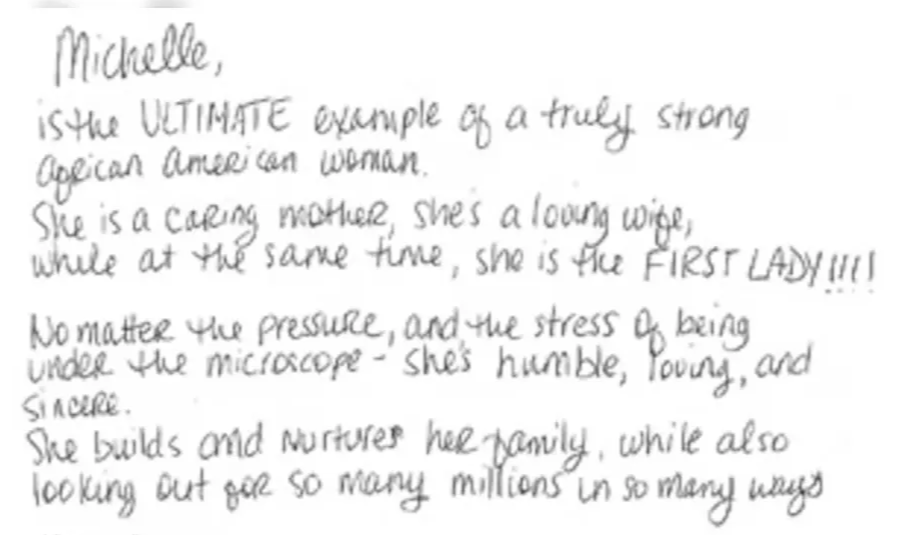 Michelle,
is the ULTIMATE example of a truly strong
African American woman.
She is a caring mother, she's a loving wife,
while at the same time, she is the FIRST LADY!!!!
No matter the pressure, and the stress of being
under the microscope - she's humble, loving, and
sincere.
She builds and nurtures her family, while also
looking out for so many millions in so many ways